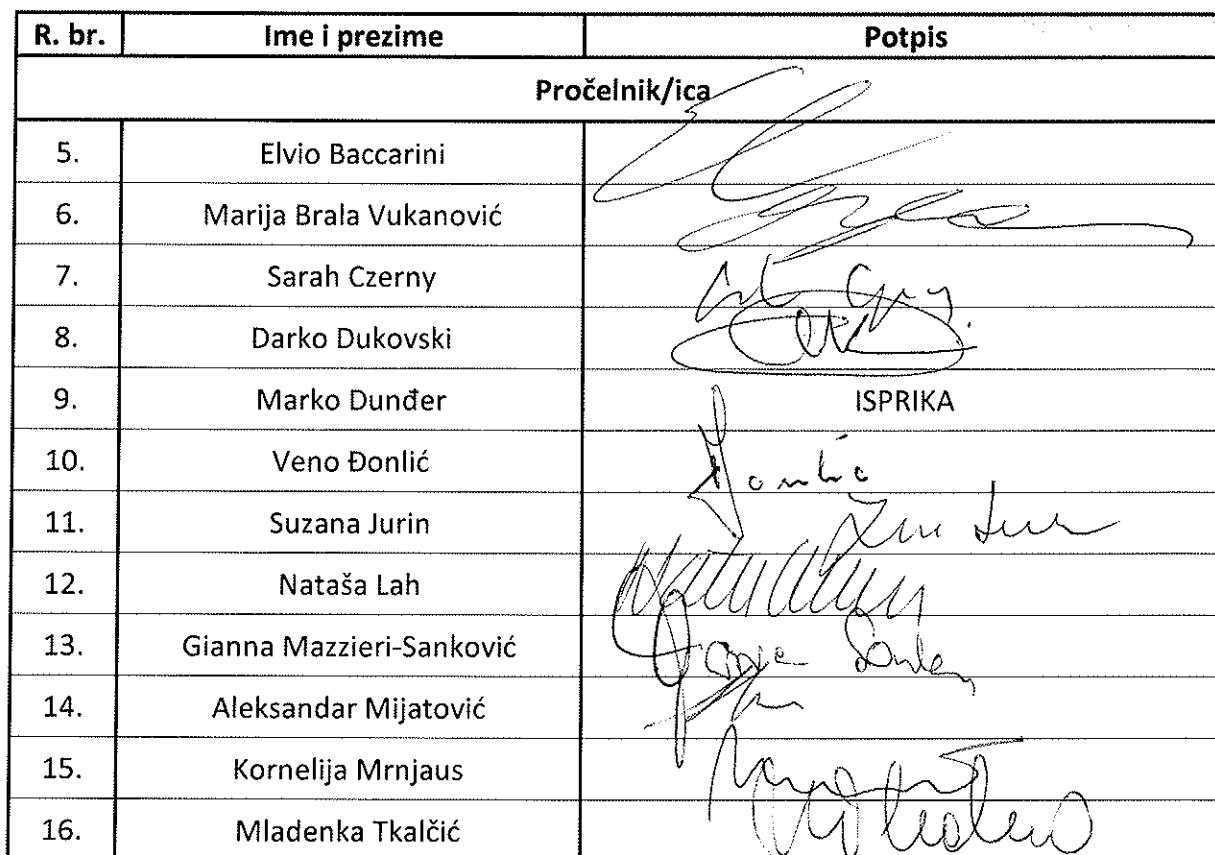 R. br. Ime i prezime Potpis
Pročelnik/ica
5. Elvio Baccarini
6. Marija Brala Vukanović
7. Sarah Czerny
8. Darko Dukovski
9. Marko Dunđer ISPRIKA
10. Veno Đonlić
11. Suzana Jurin
12. Nataša Lah
13. Gianna Mazzieri-Sanković
14. Aleksandar Mijatović
15. Kornelija Mrnjaus
16. Mladenka Tkalčić